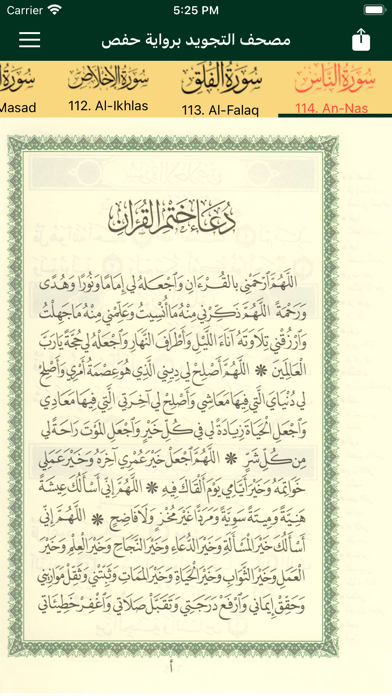 Carrier 5:25 PM
مصحف التجويد برواية حفص
سورة الناس سورة الفلق سورة الإخلاص سورة
114. An-Nas 113. Al-Falaq 112. Al-Ikhlas Masad
دُعَاءُ خَتْمِ القُرْآنِ
اللَّهُمَّ ٱرْحَمْنِي بِالقُرْءَانِ وَٱجْعَلْهُ لِي إِمَامًا وَنُورًا وَهُدًى
وَرَحْمَةً اللَّهُمَّ ذَكِّرْنِي مِنْهُ مَا نُسِّيتُ وَعَلِّمْنِي مِنْهُ مَا جَهِلْتُ
وَٱرْزُقْنِي تِلَاوَتَهُ آنَاءَ اللَّيْلِ وَأَطْرَافَ النَّهَارِ وَٱجْعَلْهُ لِي حُجَّةً يَارَبَّ
العَالَمِينَ ❊ اللَّهُمَّ أَصْلِحْ لِي دِينِي الَّذِي هُوَ عِصْمَةُ أَمْرِي وَأَصْلِحْ
لِي دُنْيَايَ الَّتِي فِيهَا مَعَاشِي وَأَصْلِحْ لِي آخِرَتِي الَّتِي فِيهَا مَعَادِي
وَٱجْعَلِ الحَيَاةَ زِيَادَةً لِي فِي كُلِّ خَيْرٍ وَٱجْعَلِ المَوْتَ رَاحَةً لِي
مِنْ كُلِّ شَرٍّ ❊ اللَّهُمَّ ٱجْعَلْ خَيْرَ عُمْرِي آخِرَهُ وَخَيْرَ عَمَلِي
خَوَاتِمَهُ وَخَيْرَ أَيَّامِي يَوْمَ أَلْقَاكَ فِيهِ ❊ اللَّهُمَّ إِنِّي أَسْأَلُكَ عِيشَةً
هَنِيَّةً وَمِيتَةً سَوِيَّةً وَمَرَدًّا غَيْرَ مُخْزٍ وَلَا فَاضِحٍ ❊ اللَّهُمَّ إِنِّي
أَسْأَلُكَ خَيْرَ المَسْأَلَةِ وَخَيْرَ الدُّعَاءِ وَخَيْرَ النَّجَاحِ وَخَيْرَ العِلْمِ وَخَيْرَ
العَمَلِ وَخَيْرَ الثَّوَابِ وَخَيْرَ الحَيَاةِ وَخَيْرَ المَمَاتِ وَثَبِّتْنِي وَثَقِّلْ مَوَازِينِي
وَحَقِّقْ إِيمَانِي وَٱرْفَعْ دَرَجَتِي وَتَقَبَّلْ صَلَاتِي وَٱغْفِرْ خَطِيئَاتِي
أ